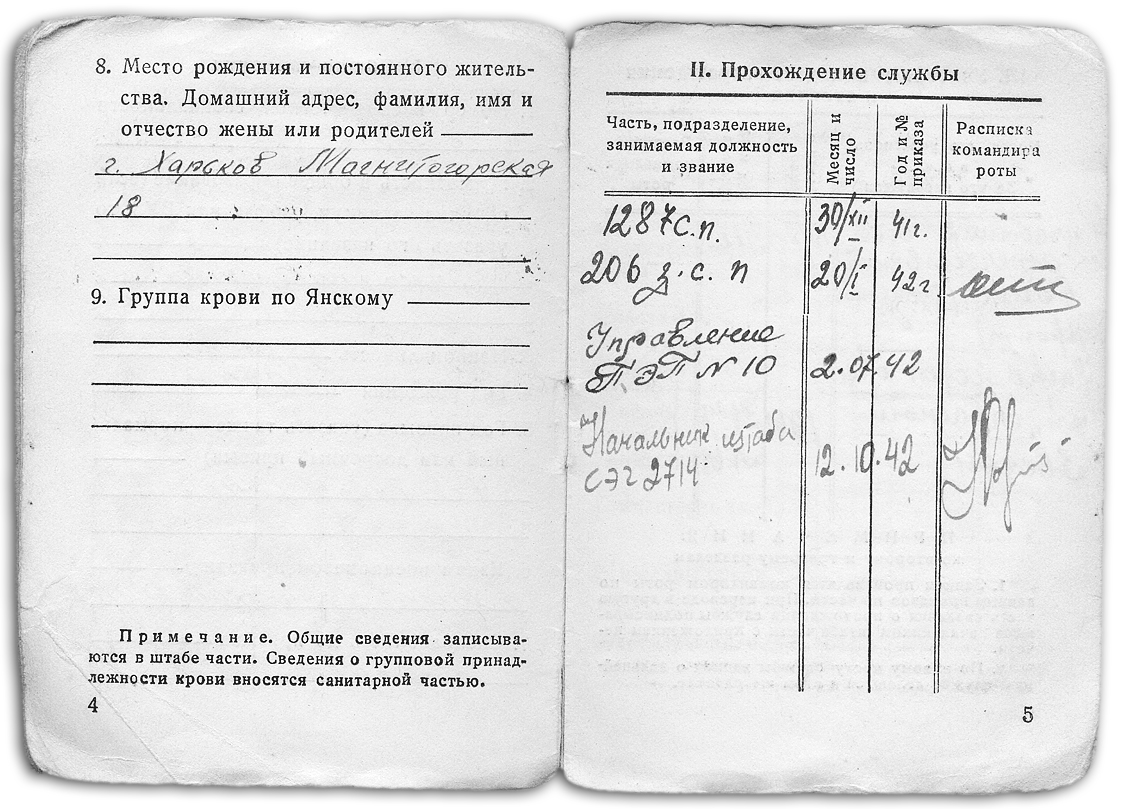 8. Место рождения и постоянного житель-
ства. Домашний адрес, фамилия, имя и
отчество жены или родителей
г. Харьков Магнитогорская
18
9. Группа крови по Янскому
Примечание. Общие сведения записыва-
ются в штабе части. Сведения о групповой принад-
лежности крови вносятся санитарной частью.
4
II. Прохождение службы
Часть, подразделение,
занимаемая должность
и звание
Месяц и
число
Год и №
приказа
Расписка
командира
роты
1287 с.п. 30/XII 41 г.
206 з. с. п 20/I 42 г
Управление
ПЭП N 10 2.07.42
Начальник штаба
СЭГ 2714 12.10.42
5